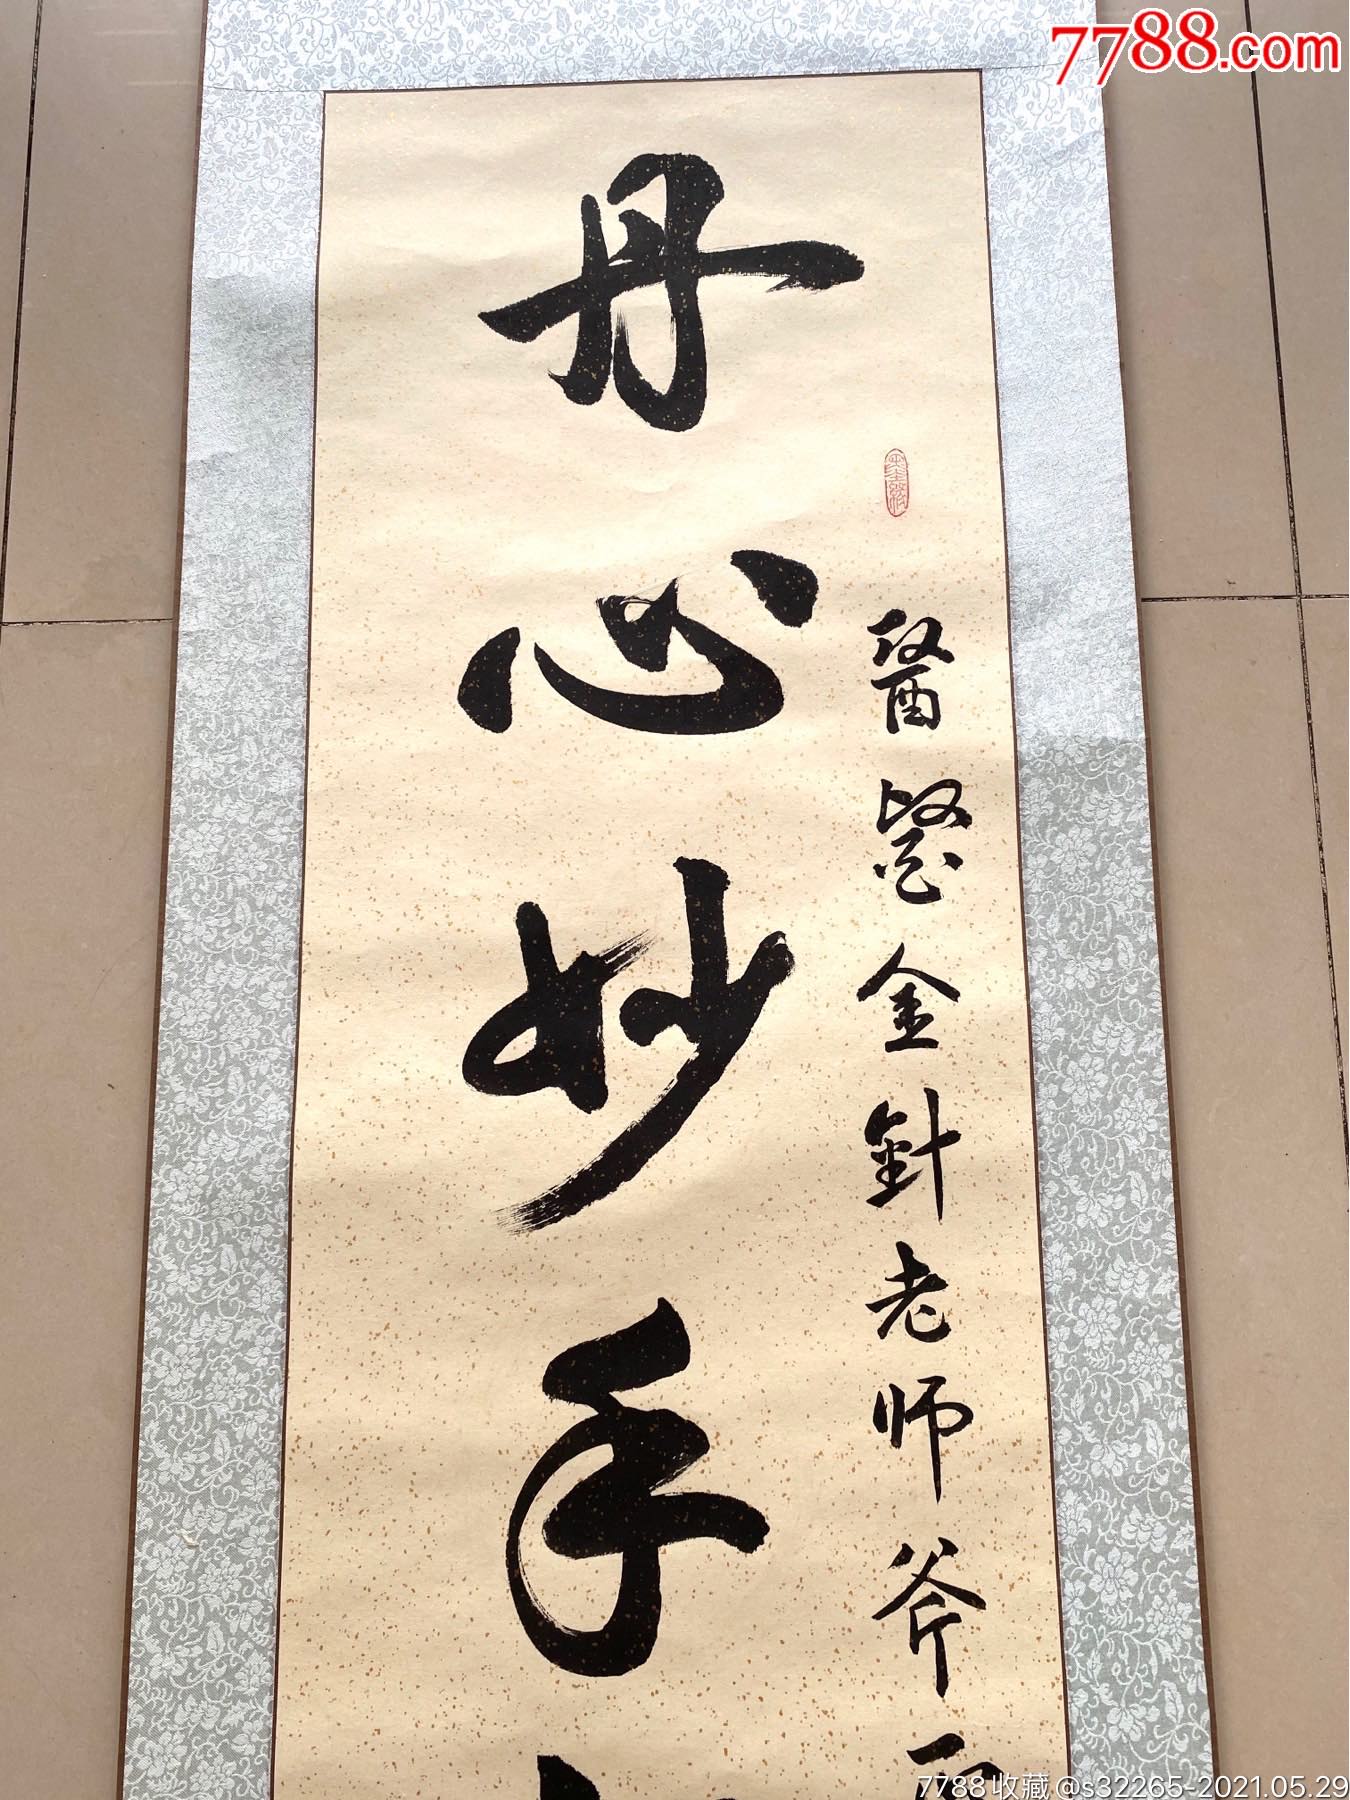 7788.com
丹心妙手
醫鑒金針老师斧
7788收藏@s32265-2021.05.29